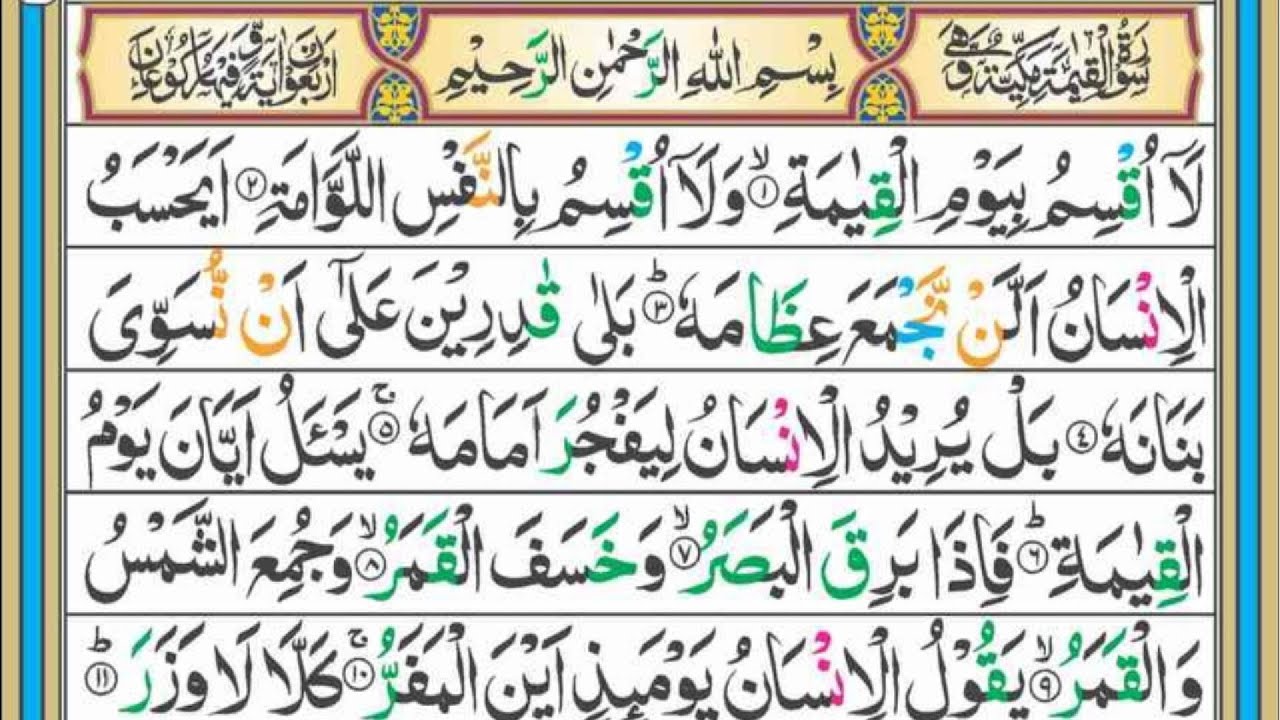 سُوْرَةُ الْقِيٰمَةِ مَكِّيَّةٌ وَّهِيَ بِسْمِ اللهِ الرَّحْمٰنِ الرَّحِيْمِ اَرْبَعُوْنَ اٰيَةً وَّفِيْهَا رُكُوْعَانِ
لَآ اُقْسِمُ بِيَوْمِ الْقِيٰمَةِ ۙ‏﴿۱﴾ وَلَآ اُقْسِمُ بِالنَّفْسِ اللَّوَّامَةِ ﴿۲﴾ اَيَحْسَبُ
الْاِنْسَانُ اَلَّنْ نَّجْمَعَ عِظَامَهٗ ؕ﴿۳﴾ بَلٰى قٰدِرِيْنَ عَلٰٓى اَنْ نُّسَوِّىَ
بَنَانَهٗ ﴿۴﴾ بَلْ يُرِيْدُ الْاِنْسَانُ لِيَفْجُرَ اَمَامَهٗ ۚ﴿۵﴾ يَسْـَٔلُ اَيَّانَ يَوْمُ
الْقِيٰمَةِ ؕ﴿۶﴾ فَاِذَا بَرِقَ الْبَصَرُ ۙ﴿۷﴾ وَخَسَفَ الْقَمَرُ ۙ﴿۸﴾ وَجُمِعَ الشَّمْسُ
وَالْقَمَرُ ۙ﴿۹﴾ يَقُوْلُ الْاِنْسَانُ يَوْمَئِذٍ اَيْنَ الْمَفَرُّ ۚ﴿۱۰﴾ كَلَّا لَا وَزَرَ ؕ﴿۱۱﴾